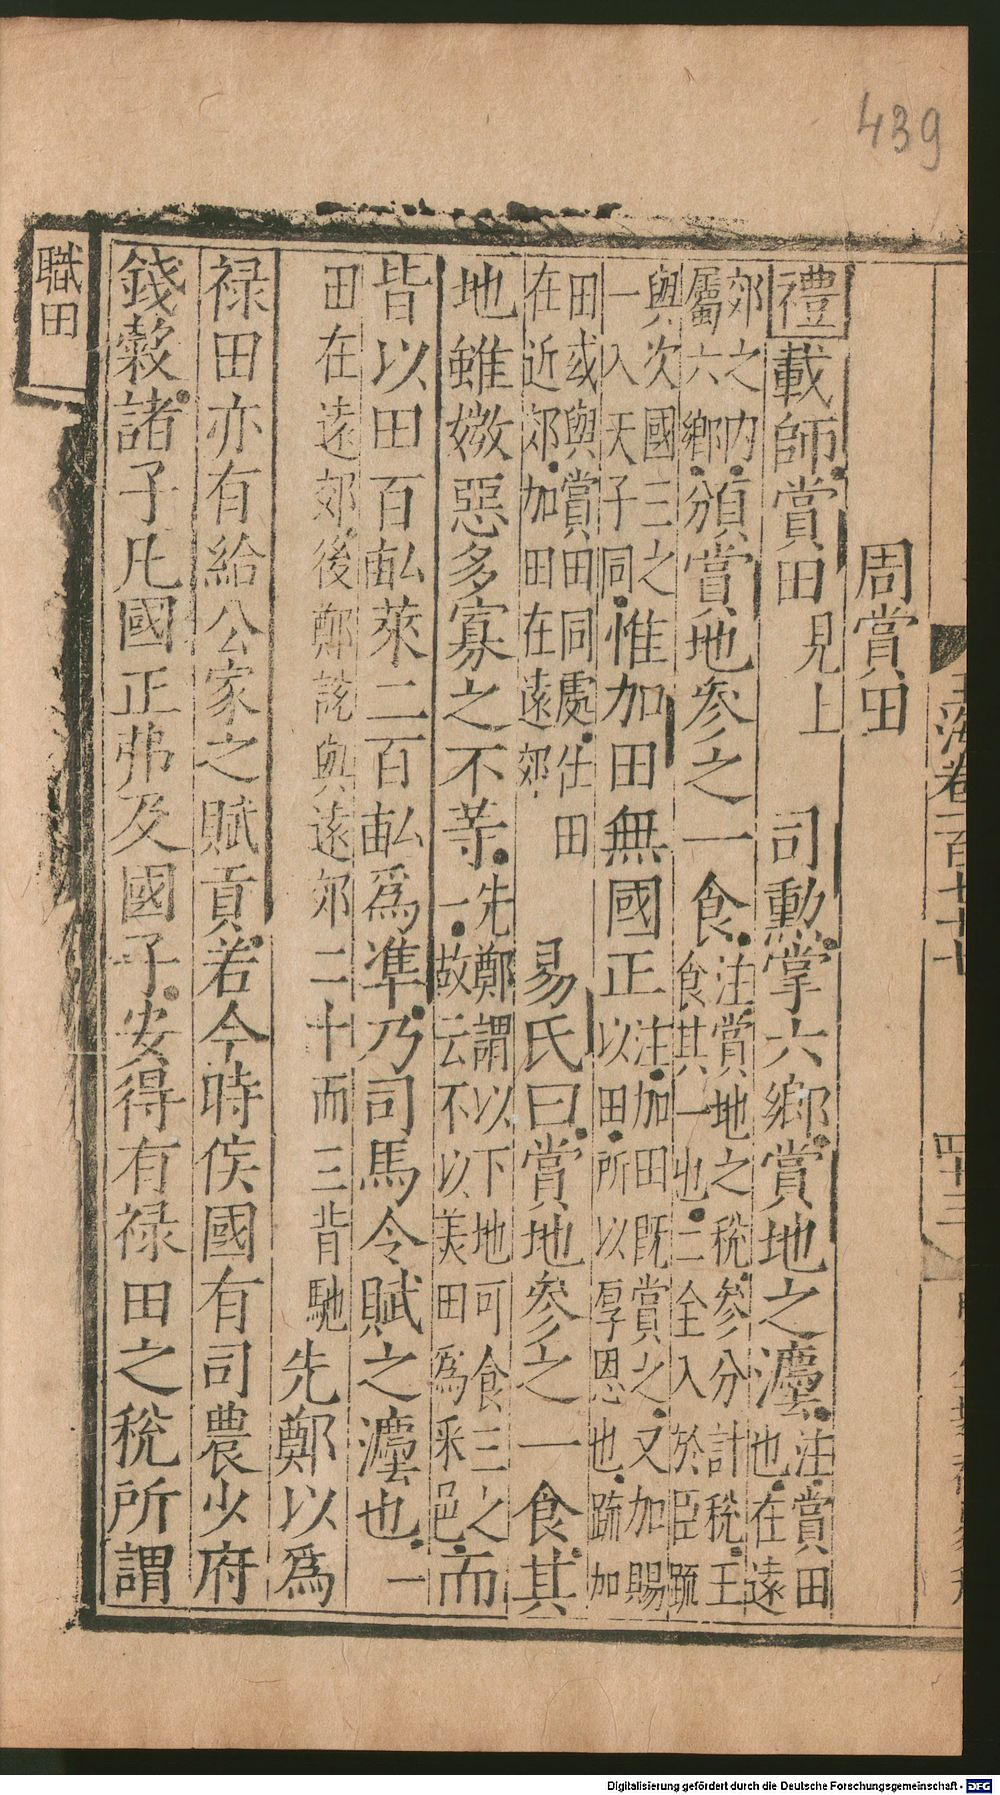 439
周賞田
禮載師賞田見上　司勳掌六鄉賞地之灋注賞田也在遠
郊之內屬六鄉頒賞地參之一食注賞地之稅參分計稅王食其一也二全入於臣疏
與次國三之一入天子同惟加田無國正注加田既賞之又加賜以田所以厚恩也疏加
田或與賞田同處仕田在近郊加田在遠郊　易氏曰賞地參之一食其
地雖媺惡多寡之不等先鄭謂以下地可食三之一故云不以美田為采邑而
皆以田百畝萊二百畝爲準乃司馬令賦之灋也一
田在遠郊後鄭說與遠郊二十而三背馳　先鄭以爲
禄田亦有給公家之賦貢若今時侯國有司農少府
錢穀諸子凡國正弗及國子安得有禄田之稅所謂
職田
玉海卷一百七十七
四十三
Digitalisierung gefördert durch die Deutsche Forschungsgemeinschaft - DFG